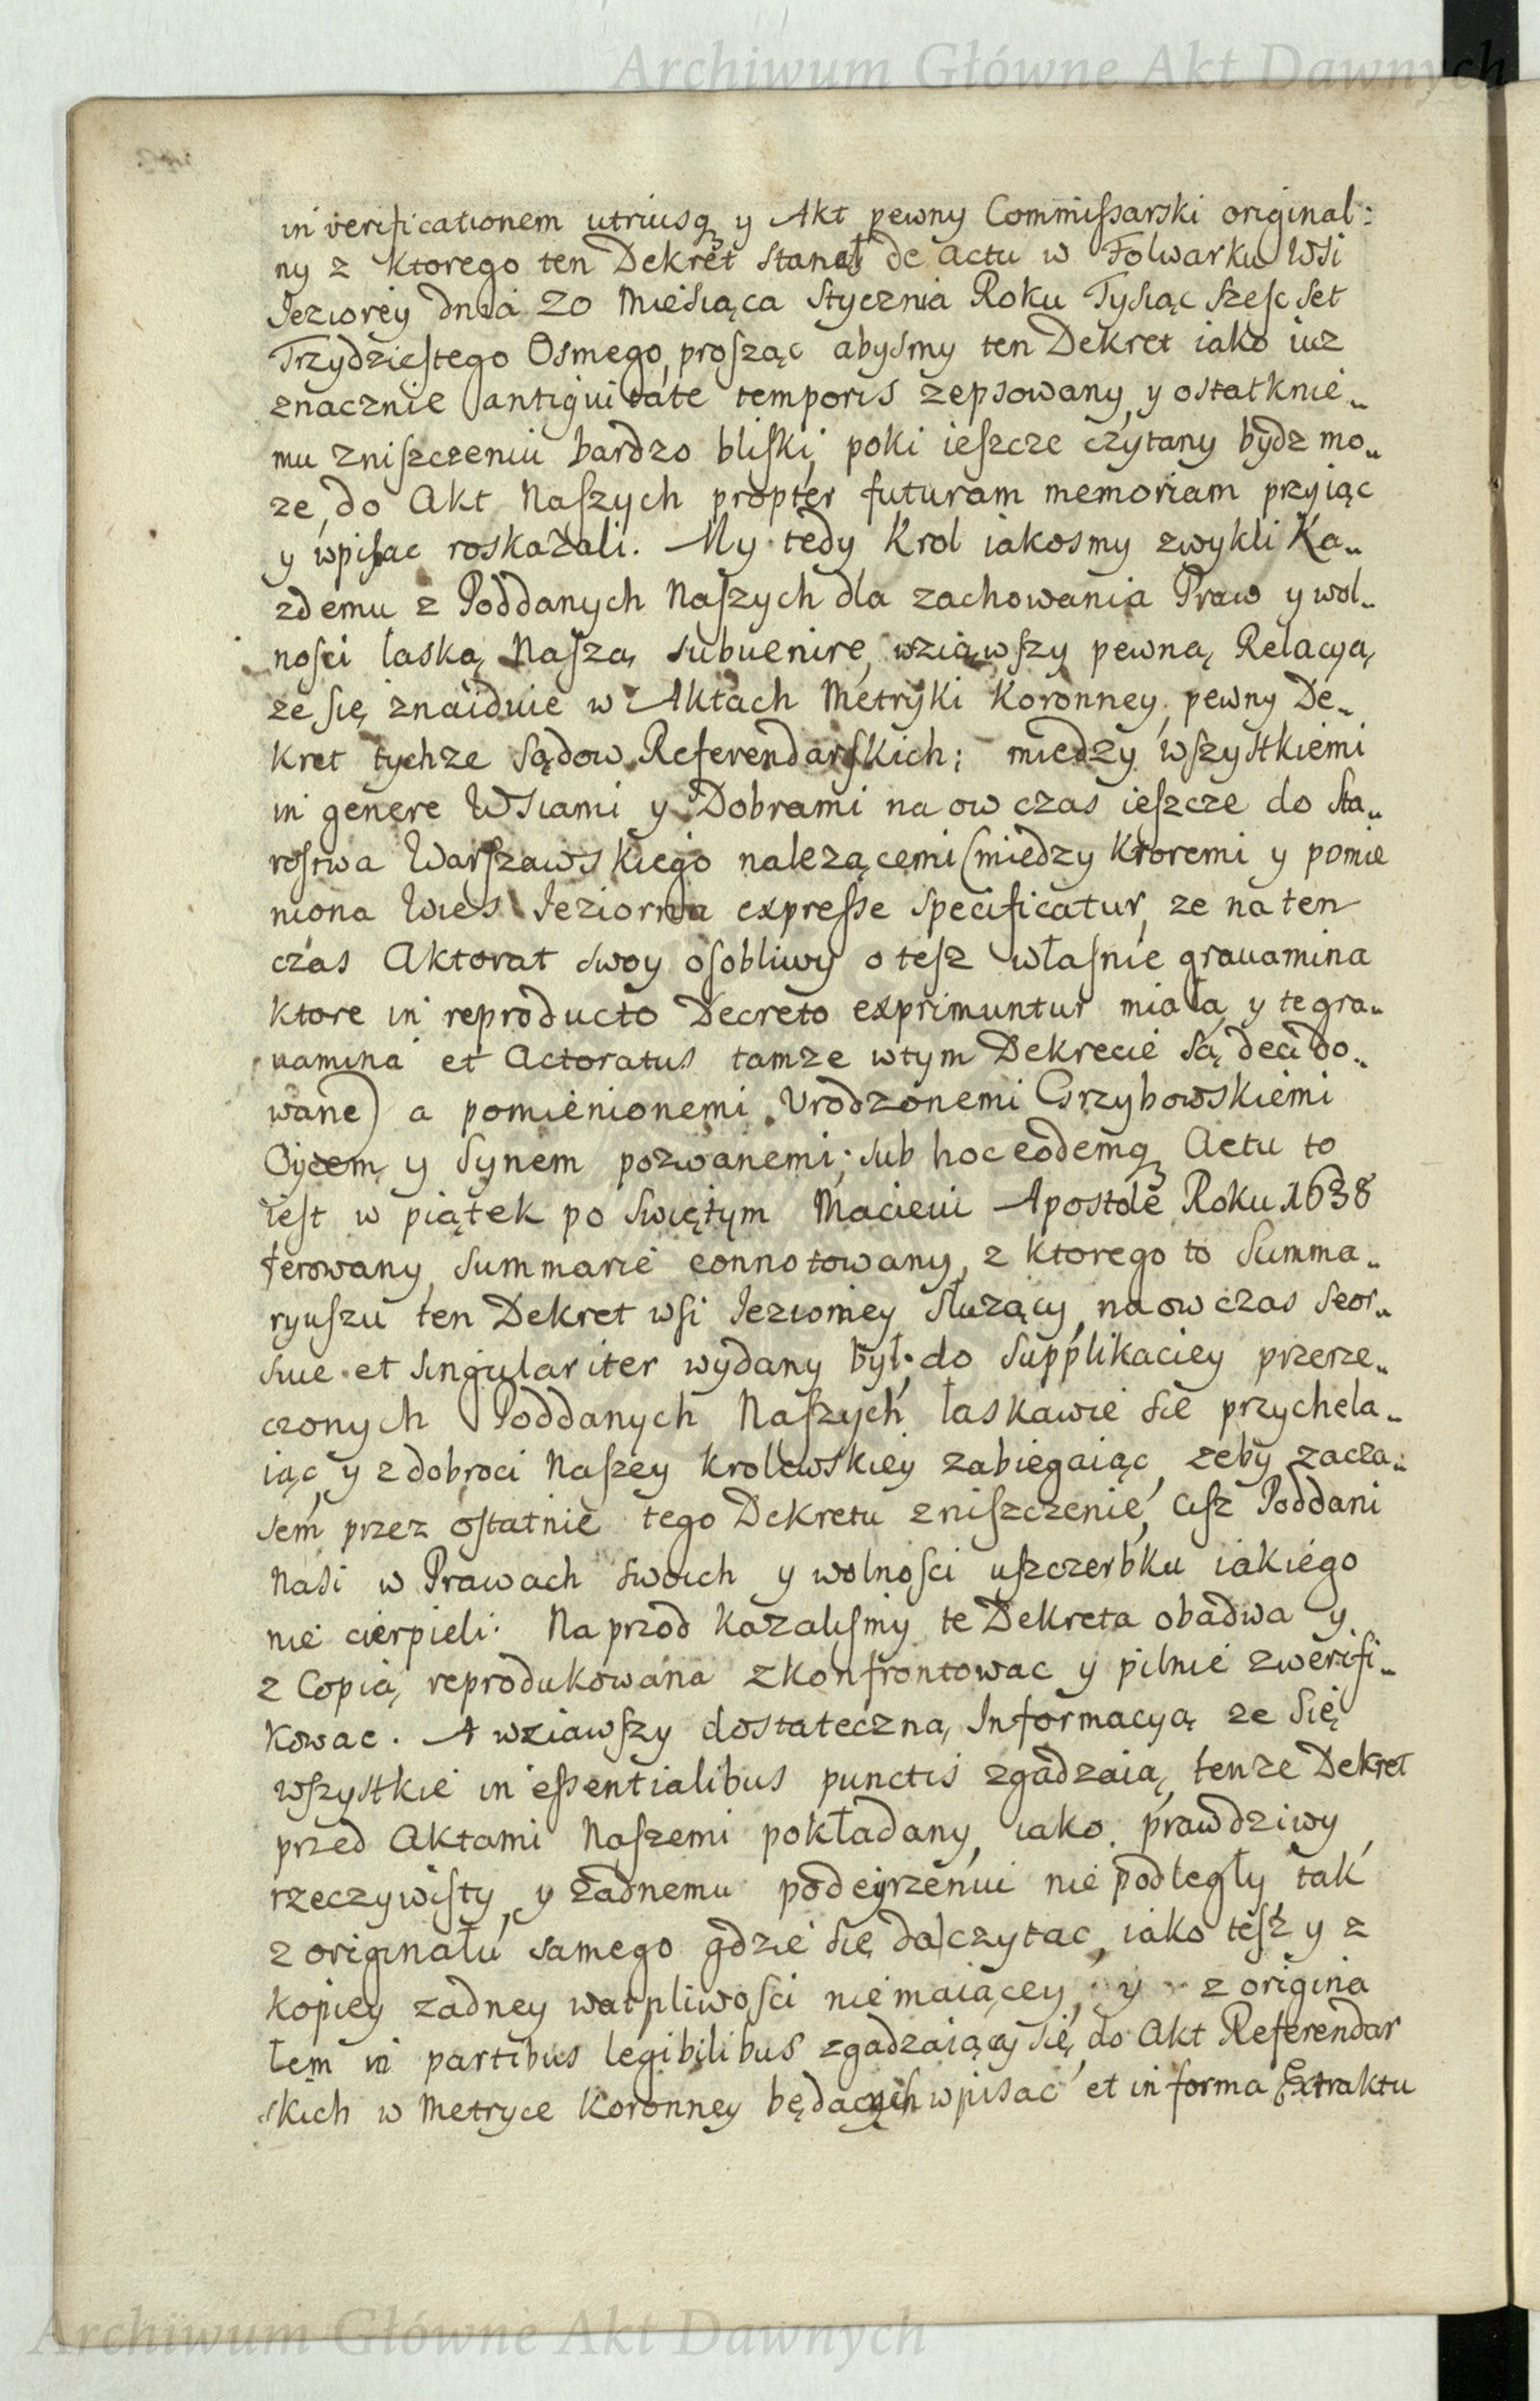 Archiwum Główne Akt Dawnych
in verificationem utriusq y Akt pewny Commissarski original:
ny z ktorego ten Dekret stanął de actu w Folwarku Wsi
Jeziorey dnia 20 Miesiąca Stycznia Roku Tysiąc szesc set
Trzydziestego Osmego, prosząc abysmy ten Dekret iako iuz
znacznie antiquitate temporis zepsowany, y ostatknie„
mu zniszczeniu bardzo bliski, poki ieszcze czytany bydz mo„
ze, do Akt Naszych propter futuram memoriam przyiąc
y wpisac roskazali. My tedy Krol iakosmy zwykli Ka„
zdemu z Poddanych Naszych dla zachowania Praw y wol„
nosci łaską Naszą subuenire, wziąwszy pewną Relacyą,
ze się znaiduie w Aktach Metryki Koronney, pewny De„
kret tychze Sądow Referendarskich; miedzy wszystkiemi
in genere Wsiami y Dobrami na ow czas ieszcze do Sta„
rostwa Warszawskiego nalezącemi (miedzy ktoremi y pomie
niona Wies Jeziorna expresse specificatur, ze na ten
czas Aktorat swoy osobliwy o tesz własnie grauamina
ktore in reproducto Decreto exprimuntur miała, y te gra„
uamina et Actoratus tamze w tym Dekrecie są decido„
wane) a pomienionemi Urodzonemi Grzybowskiemi
Oycem y Synem pozwanemi; sub hoc eodemq Actu to
iest w piątek po Swiętym Macieiu Apostole Roku 1638
ferowany, summarie connotowany, z ktorego to Summa„
ryuszu ten Dekret wsi Jeziorney służący, na ow czas seor„
siue et singulariter wydany był; do supplikaciey przerze„
czonych Poddanych Naszych łaskawie sie przychela„
iąc, y z dobroci Naszey Krolewskiey zabiegaiąc, zeby zacza„
sem przez ostatnie tego Dekretu zniszczenie, cisz Poddani
Nasi w Prawach swoich y wolnosci uszczerbku iakiego
nie cierpieli. Naprzod kazalismy te Dekreta obadwa y
z Copią reprodukowana zkonfrontowac y pilnie zwerifi„
kowac. A wziawszy dostateczną Informacyą ze się
wszystkie in essentialibus punctis zgadzaią, tenze Dekret
przed Aktami Naszemi pokładany, iako prawdziwy,
rzeczywisty, y żadnemu podeyrzeniu nie podległy, tak
z originału samego gdzie się da czytac, iako tesz y z
kopiey zadney watpliwosci nie maiącey, y z origina
łem in partibus legibilibus zgadzaiący się, do Akt Referendar
skich w Metryce Koronney będacych wpisac et in forma Extraktu
Archiwum Główne Akt Dawnych